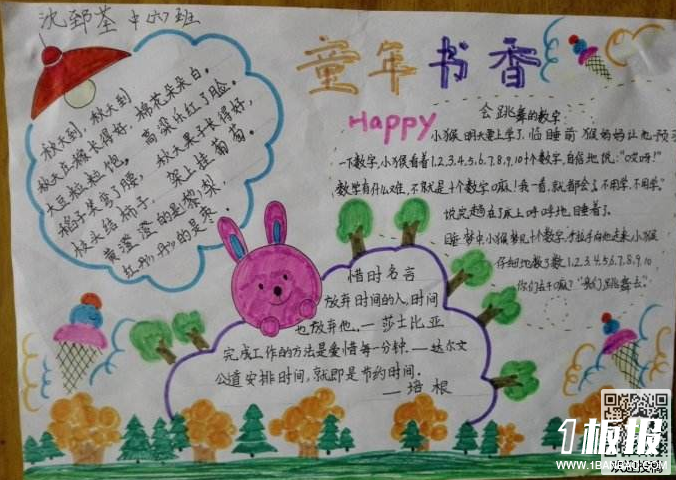 沈郅荃 中(六)班
童年书香
Happy
秋天到,秋天到
秋天庄稼长得好,棉花朵朵白。
大豆粒粒饱。高粱乐红了脸。
稻子笑弯了腰,秋天果子长得好,
枝头结柿子,架上挂葡萄。
黄澄澄的是黎梨,
红丹丹的是枣。
会跳舞的数字
小猴明天要上学了,临睡前猴妈妈让他预习
一下数字,小猴看着1.2.3.4.5.6.7.8.9.10十个数字,自信地说:"哎呀!
数学有什么难,不就是十个数字嘛!我一看,就都会了不用学,不用学。"
说完趟在床上呼呼地睡着了。
睡梦中,小猴梦见十个数字,手拉手向他走来,小猴
仔细地数了数1.2.3.4.5.6.7.8.9.10
你们去干嘛?"我们跳舞去。"
惜时名言
放弃时间的人,时间
也放弃他。—莎士比亚
完成工作的方法是爱惜每一分钟。—达尔文
公道安排时间,就即是节约时间。
—培根
1板报
WWW.1BANBAO.COM
欢迎投稿